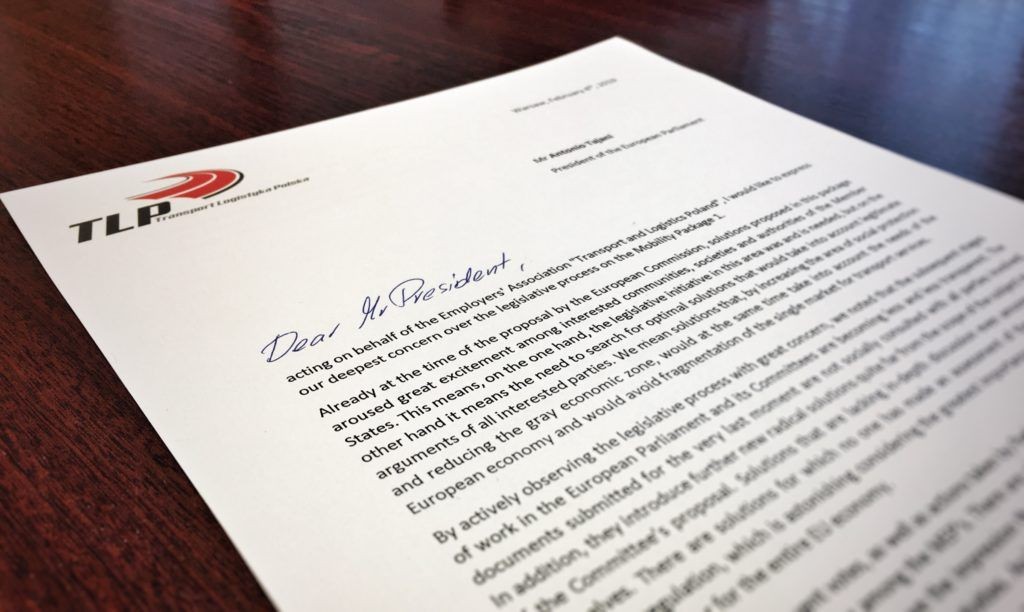 Warsaw, February 4th, 2019
Mr Antonio Tajani
President of the European Parliament
TLP
Transport Logistyka Polska
Dear Mr President,
acting on behalf of the Employers' Association "Transport and Logistics Poland", I would like to express
our deepest concern over the legislative process on the Mobility Package 1.
Already at the time of the proposal by the European Commission, solutions proposed in this package
aroused great excitement among interested communities, societies and authorities of the Member
States. This means, on the one hand, the legislative initiative in this area was and is needed, but on the
other hand it means the need to search for optimal solutions that would take into account legitimate
arguments of all interested parties. We mean solutions that, by increasing the area of social protection
and reducing the gray economic zone, would at the same time take into account the needs of the
European economy and would avoid fragmentation of the single market for transport services.
By actively observing the legislative process with great concern, we noted that the subsequent stages
of work in the European Parliament and its Committees are becoming less and less transparent. The
documents submitted for the very last moment are not socially consulted with all parties
In addition, they introduce further new radical solutions quite far from the
the Committee's proposal. Solutions that are lacking in-depth discussion
There are solutions for which no one has made an assessment of
regulation, which is astonishing considering the greatest
for the entire EU economy.
votes, as well as actions taken
among the MEPs. There